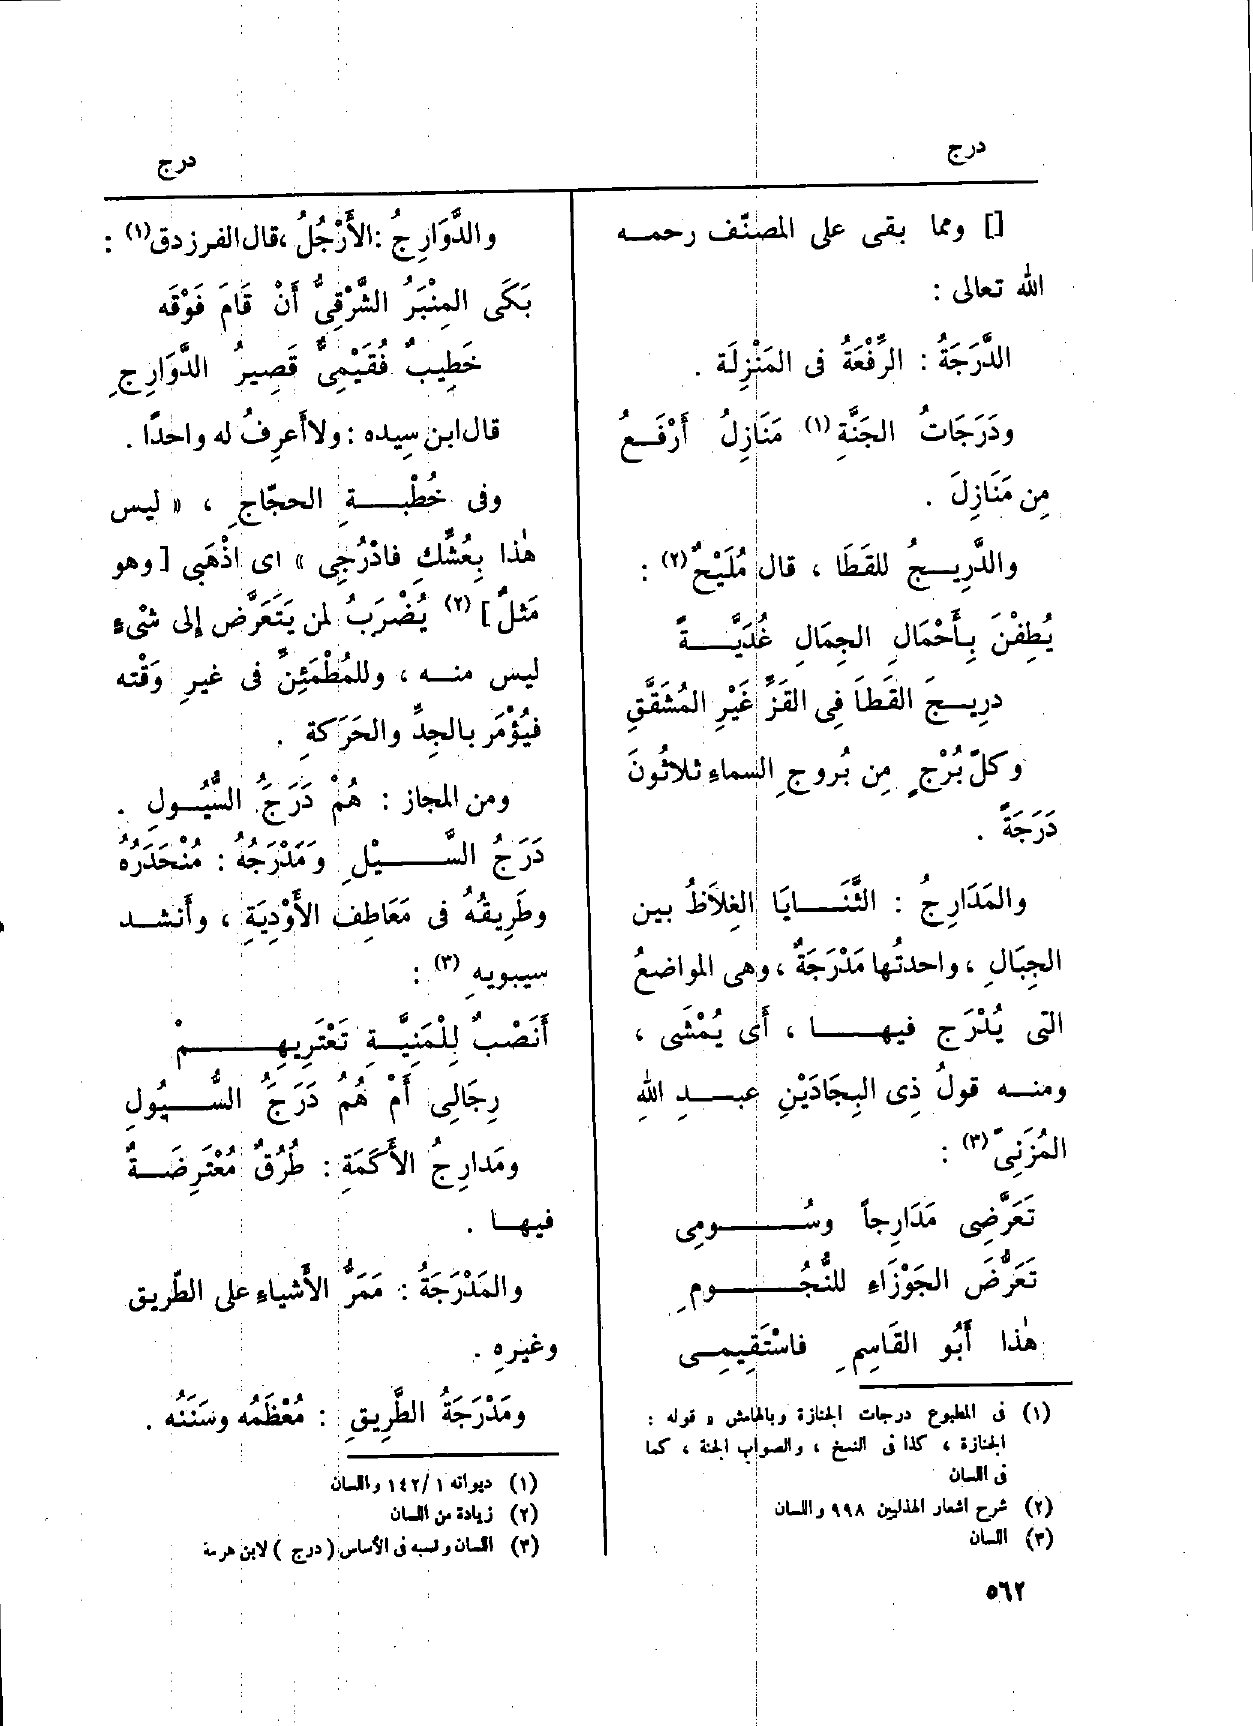 درج
درج
[] ومما بقى على المصنّف رحمه
الله تعالى :
الدَّرَجَةُ : الرِّفْعَةُ فى المَنْزِلَة .
ودَرَجَاتُ الجَنَّةِ (١) مَنَازِلُ أَرْفَعُ
مِن مَنَازِلَ .
والدَّرِيجُ للقَطَا ، قال مُلَيْحٌ (٢) :
يُطِفْنَ بِأَحْمَالِ الجِمَالِ غُدَيَّةً
درِيجَ القَطَا فِى القَزِّ غَيْرِ المُشَقَّقِ
وكلّ بُرْجٍ مِن بُروجِ السماءِ ثلاثُونَ
دَرَجَةً .
والمَدَارِجُ : الثَّنَايَا الغِلَاظُ بين
الجِبَالِ ، واحدتُها مَدْرَجَةٌ ، وهى المواضعُ
التى يُدْرَج فيها ، أَى يُمْشَى ،
ومنه قولُ ذِى البِجَادَيْنِ عبدِ اللهِ
المُزَنِىّ (٣) :
تَعَرَّضِى مَدَارِجاً وسُومِى
تَعَرُّضَ الجَوْزَاءِ للنُّجُومِ
هٰذا أَبُو القَاسِمِ فاسْتَقِيمِى
(١) فى المطبوع درجات الجنازة وبالهامش « قوله :
الجنازة ، كذا فى النسخ ، والصواب الجنة ، كما
فى اللسان
(٢) شرح اشعار الهذليين ٩٩٨ واللسان
(٣) اللسان
والدَّوَارِجُ : الأَرْجُلُ ، قال الفرزدق (١) :
بَكَى المِنْبَرُ الشَّرْقِىُّ أَنْ قَامَ فَوْقَه
خَطِيبٌ فُقَيْمِىٌّ قَصِيرُ الدَّوَارِجِ
قال ابن سِيده : ولا أَعرِفُ له واحدًا .
وفى خُطْبَةِ الحجّاجِ ، « ليس
هٰذا بِعُشِّكِ فادْرُجِى » اى اذْهَبى [ وهو
مَثلٌ ] (٢) يُضْرَبُ لمن يَتَعَرَّض إلى شىْءٍ
ليس منه ، وللمُطْمَئِنِّ فى غيرِ وَقْته
فيُؤْمَر بالجِدِّ والحَرَكةِ .
ومن المجاز : هُمْ دَرَجُ السُّيُولِ .
دَرَجُ السَّيْلِ ومَدْرَجُهُ : مُنْحَدَرُهُ
وطَرِيقُهُ فى مَعَاطِفِ الأَوْدِيَةِ ، وأَنشد
سيبويهِ (٣) :
أَنَصْبٌ لِلْمَنِيَّةِ تَعْتَرِيهِمْ
رِجَالِى أَمْ هُمُ دَرَجُ السُّيُولِ
ومَدارِجُ الأَكَمَةِ : طُرُقٌ مُعْتَرِضَةٌ
فيها .
والمَدْرَجَةُ : مَمَرُّ الأَشياءِ على الطّريق
وغيرِهِ .
ومَدْرَجَةُ الطَّرِيقِ : مُعْظَمُه وسَنَنُه .
(١) ديوانه ١ /١٤٢ واللسان
(٢) زيادة من اللسان
(٣) اللسان ونسبه فى الأساس ( درج ) لابن هرمة
٥٦٢